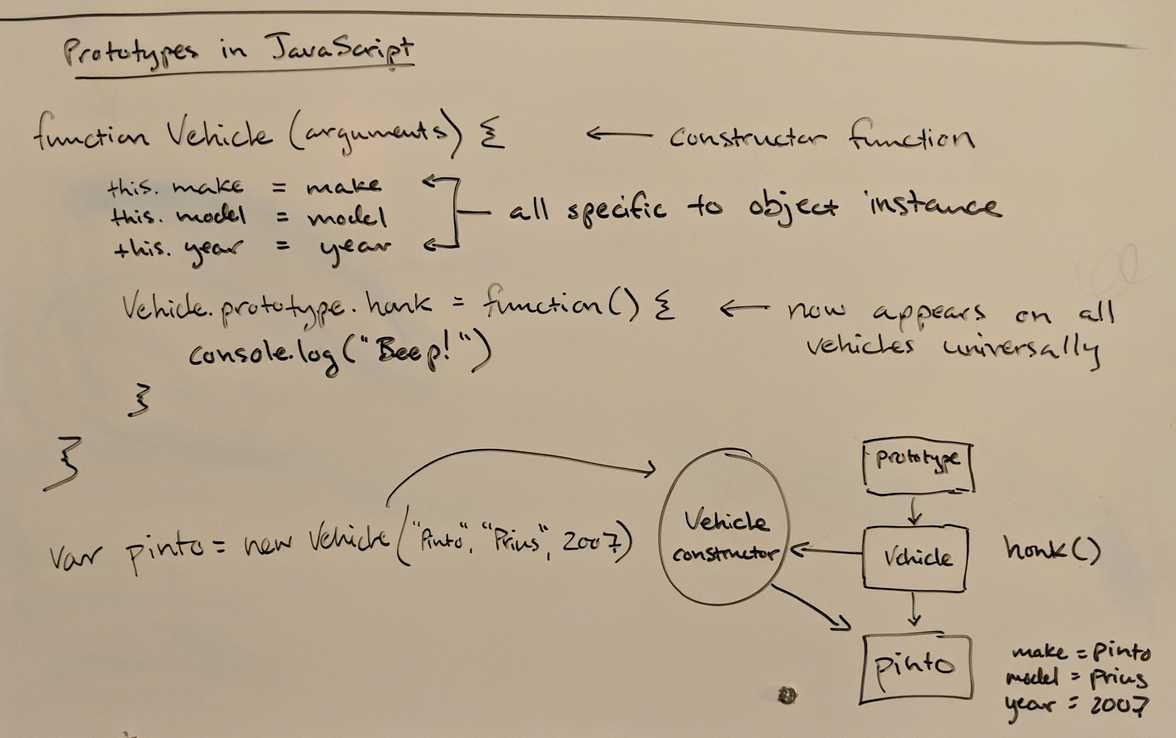 Prototypes in JavaScript
function Vehicle (arguments) { ← constructor function
this.make = make
this.model = model
this.year = year
all specific to object instance
Vehicle.prototype.honk = function() { ← now appears on all
vehicles universally
console.log("Beep!")
}
}
var pinto = new Vehicle ("Pinto", "Prius", 2007)
Vehicle
constructor
prototype
Vehicle
honk()
pinto
make = pinto
model = prius
year = 2007